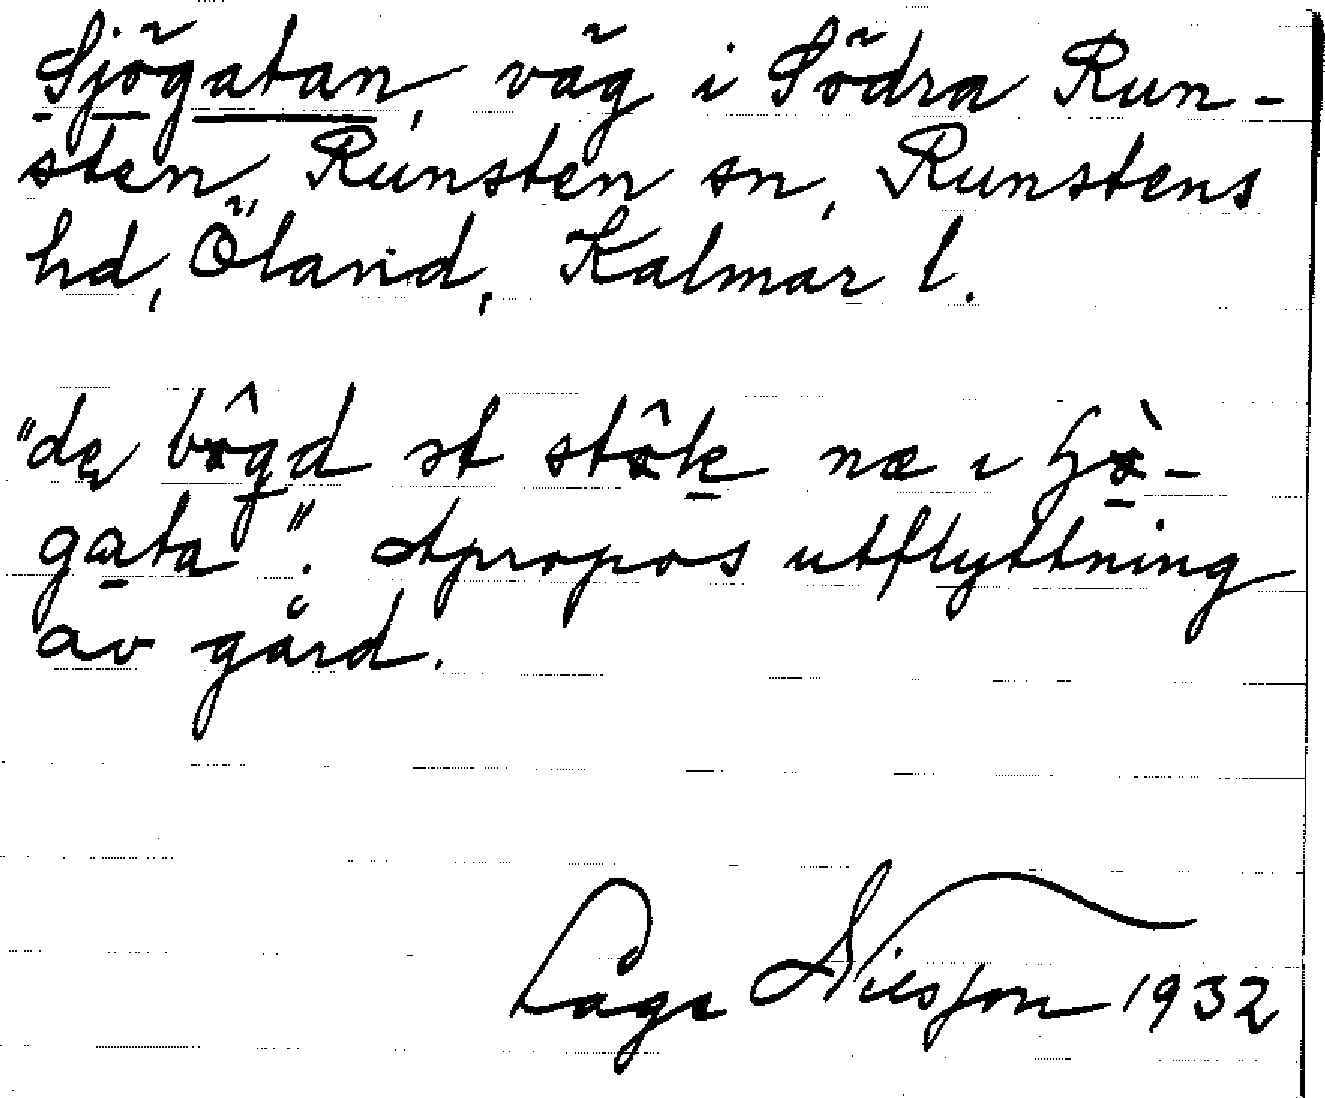 Sjögatan, väg i Södra Run-
sten, Runsten sn, Runstens
hd, Öland, Kalmar l.
"de bôgd st stôk næ ı
gata". Apropos utflyttning
av gård.
Nilsson 1932